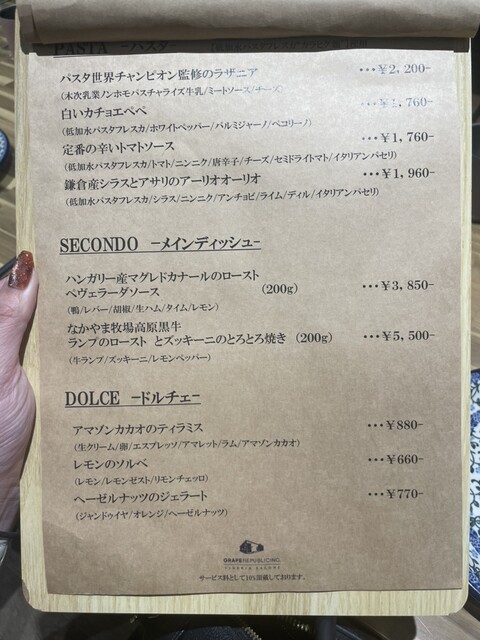 PASTA －パスタ－
パスタ世界チャンピオン監修のラザニア ・・・¥2, 200-
(木次乳業ノンホモパスチャライズ牛乳/ミートソース/チーズ)
白いカチョエペペ ・・・¥1, 760-
(低加水パスタフレスカ/ホワイトペッパー/パルミジャーノ/ペコリーノ)
定番の辛いトマトソース ・・・¥1, 760-
(低加水パスタフレスカ/トマト/ニンニク/唐辛子/チーズ/セミドライトマト/イタリアンパセリ)
鎌倉産シラスとアサリのアーリオオーリオ ・・・¥1, 960-
(低加水パスタフレスカ/シラス/ニンニク/アンチョビ/ライム/ディル/イタリアンパセリ)
SECONDO －メインディッシュ-
ハンガリー産マグレドカナールのロースト
ペヴェラーダソース (200g) ・・・¥3, 850-
(鴨/レバー/胡椒/生ハム/タイム/レモン)
なかやま牧場高原黒牛
ランプのロースト とズッキーニのとろとろ焼き (200g) ・・・¥5, 500-
(牛ランプ/ズッキーニ/レモンペッパー)
DOLCE －ドルチェ-
アマゾンカカオのティラミス ・・・¥880-
(生クリーム/卵/エスプレッソ/アマレット/ラム/アマゾンカカオ)
レモンのソルベ ・・・¥660-
(レモン/レモンゼスト/リモンチェッロ)
ヘーゼルナッツのジェラート ・・・¥770-
(ジャンドゥイヤ/オレンジ/ヘーゼルナッツ)
GRAPEREPUBLIC INC.
サービス料として10%頂戴しております。